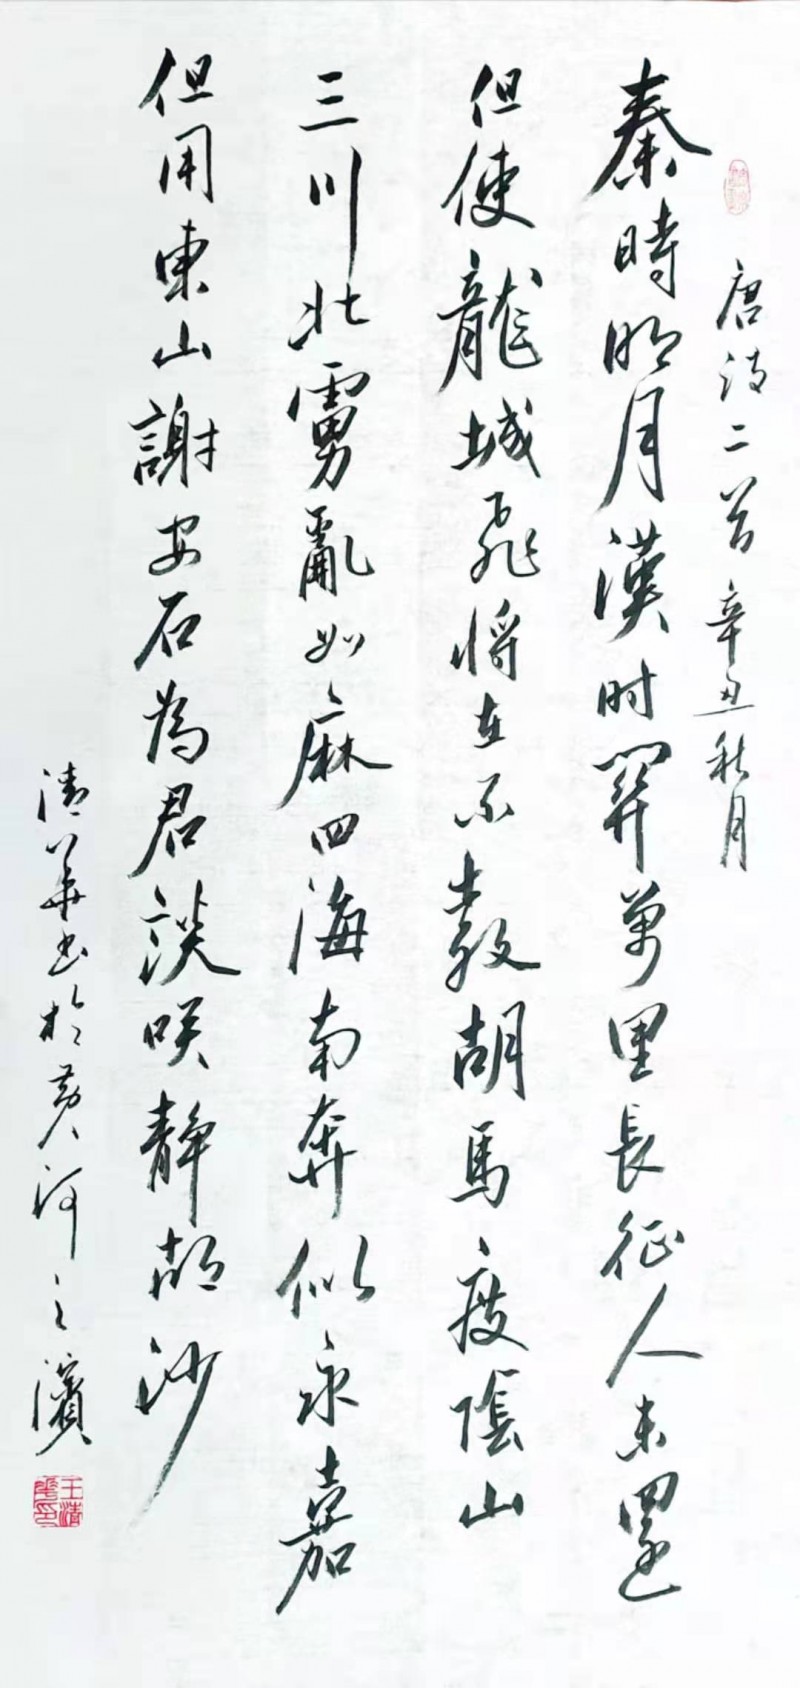 唐诗二首 辛丑秋月
秦時明月漢时関萬里長征人未還
但使龍城飛将在不教胡馬度陰山
三川北虜亂如麻四海南奔似永嘉
但用東山謝安石為君談咲静胡沙
清华书於黄河之濱
王清华印